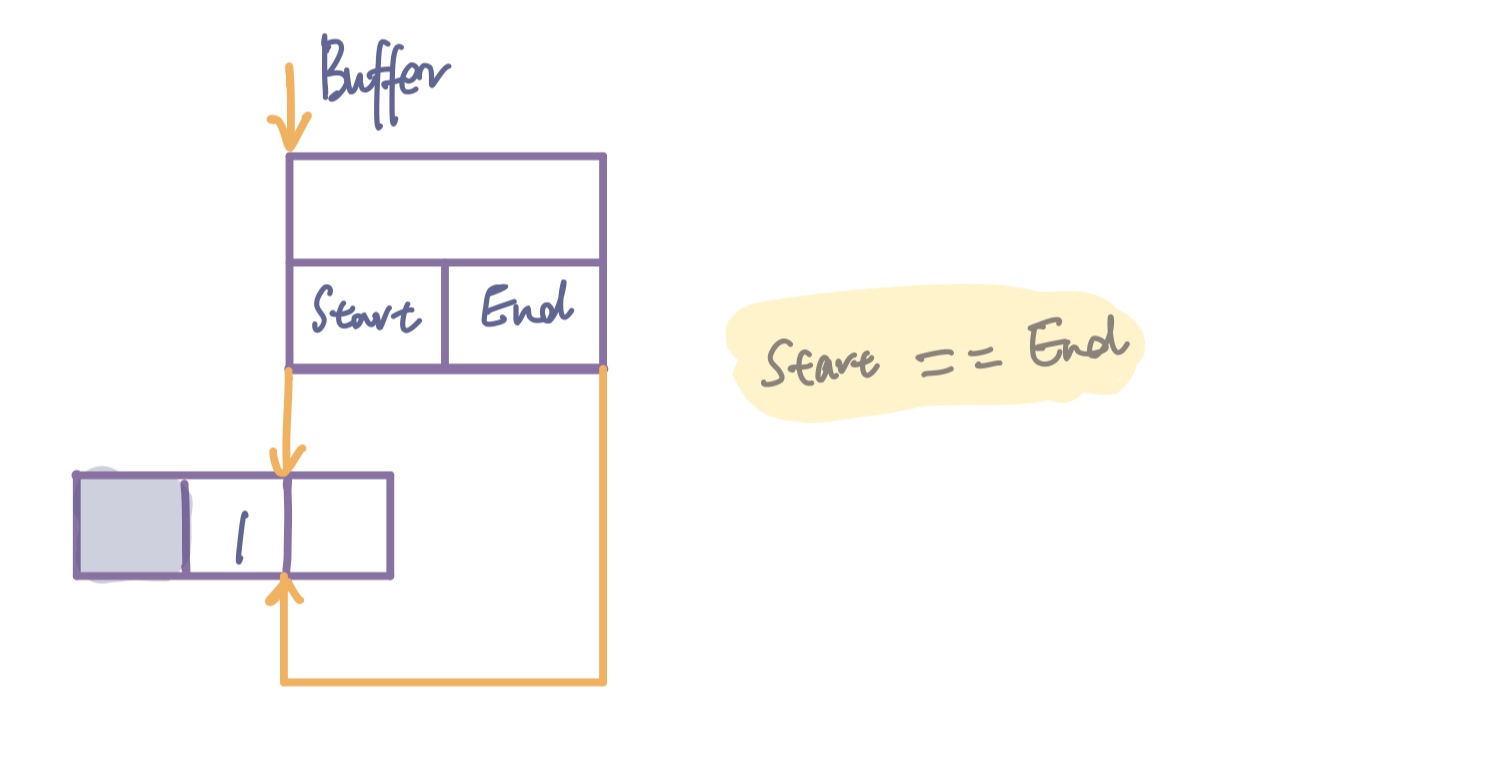 Buffer
Start End
Start == End
1